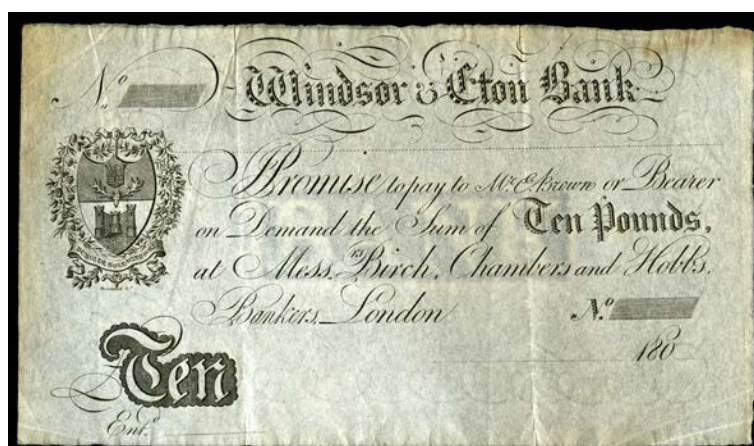 No
Windsor & Eton Bank
I Promise to pay to Mr. E. Brown or Bearer
on Demand the Sum of Ten Pounds,
at Messrs Birch, Chambers and Hobbs,
Bankers, London No
180
Ten
Entd